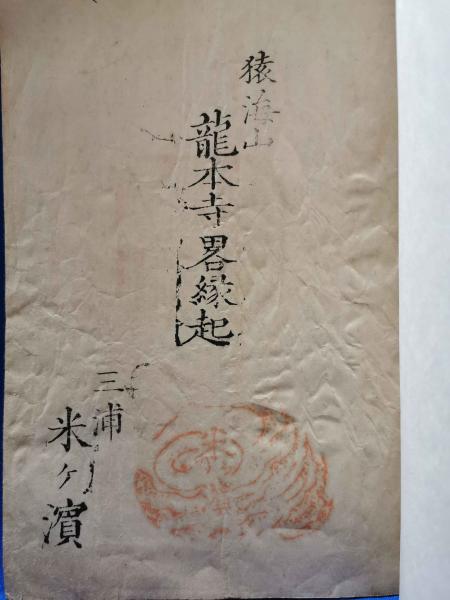 猿海山
龍本寺畧縁起
三浦
米ケ濱